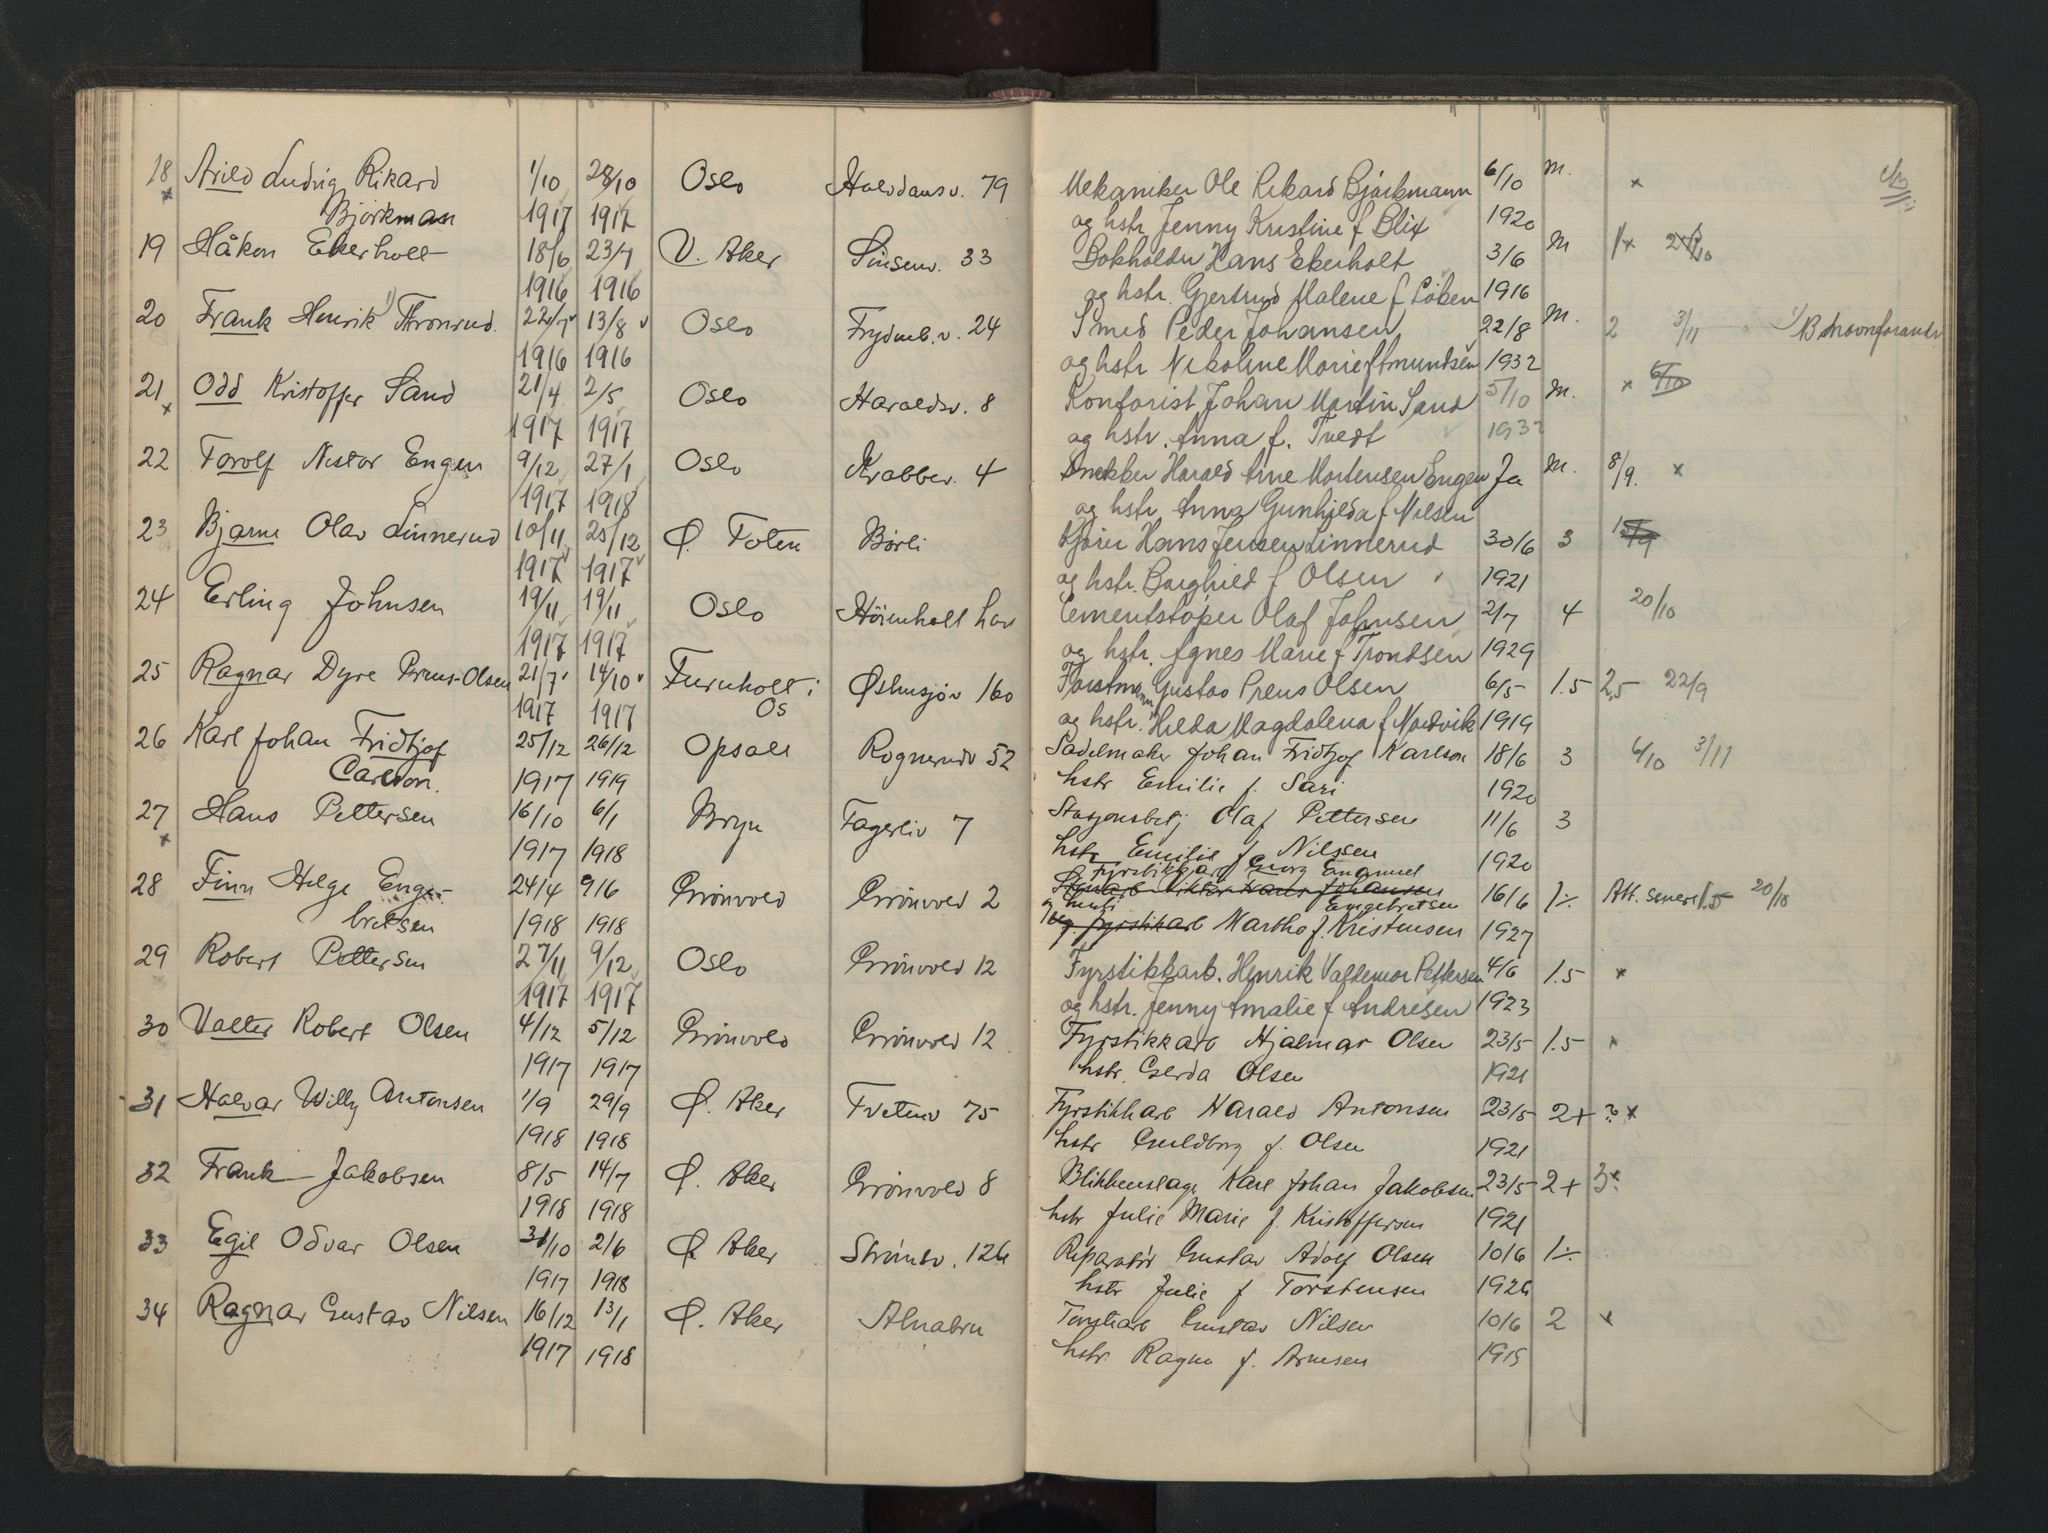 18 Arild Ludvig Rikard 1/10 28/10 Oslo Halvdansv. 79 Mekaniker Ole Rikard Bjørkmann 6/10 M. x
x Bjørkman 1917 1917 og hstr. Jenny Kristine f. Blix 1920
19 Håkon Ekerholt 18/6 23/7 V. Aker Sinsenv. 33 Bokholder Hans Ekerholt 3/6 M
1916 1916 og hstr. Gjertrud Malene f. Löken 1916
20 Frank Henrik 1) Thronrud. 22/7 13/8 Oslo Frydenb.v. 24 Smed Peder Johansen 22/8 M. 2 3/11 1) B. navneforandr
1916 1916 og hstr. Nikoline Marie Amundsen 1932
21 Odd Kristoffer Sand 21/4 2/5 Oslo Haraldsv. 8 Kontorist Johan Martin Sand 5/10 M. x 6/10
x 1917 1917 og hstr. Anna f. Tvedt 1932
22 Torolf Nestor Engen 9/12 27/1 Oslo Krabbev. 4 Snekker Harald Arne Mortensen Engen Ja M. 8/9. x
1917 1918 og hstr. Anna Gunhilda f. Nilsen
23 Bjarne Olav Linnerud 10/11 25/12 Ø. Toten Børli Kjører Hans Jensen Linnerud 30/6 3
1917 1917 og hstr. Borghild f. Olsen 1921
24 Erling Johnsen 19/11 19/11 Oslo Cementstöper Olaf Johnsen 2/7 4 20/10
1917 1917 og hstr. Agnes Marie f. Trondsen 1929
25 Ragnar Dyre Preus-Olsen 21/7 14/10 Furuholt i Østmsjøv 160 Forstmann Gustav Preus Olsen 6/5 1.5 2,5 22/9
1917 1917 Os og hstr. Hilda Magdalena f. Nordvik 1919
26 Karl Johan Fridtjof 25/12 26/12 Opsal Rognerudv 52 Sadelmaker Johan Fridtjof Karlson 18/6 3 6/10 3/11
Carlson. 1917 1919 hstr Emilie f. Sari 1920
27 Hans Pettersen 16/10 6/1 Bryn Fagerliv 7 Stasjonsbetj Olaf Pettersen 11/6 3
x 1917 1918 hstr Emilie f. Nilssen 1920
28 Finn Helge Enge- 24/4 9/6 Grönvold Grönvold 2 Fyrstikkarb Georg Emanuel
Viktor Hans Johansen 16/6 1÷ Att. senere 1.5 20/10
Engebretsen
bretsen 1918 1918 fyrstikkarb Martha f. Kristensen 1927
29 Robert Pettersen 27/11 9/12 Oslo Grönvold 12 Fyrstikkarb. Henrik Valdemar Pettersen 4/6 1.5 x
1917 1917 og hstr. Jenny Amalie f. Andresen 1923
30 Valter Robert Olsen 4/12 5/12 Grönvold Grönvold 12 Fyrstikkarb Hjalmar Olsen 23/5 1.5 x
1917 1917 hstr. Gerda Olsen 1921
31 Halvar Willy Antonsen 1/9 29/9 Ø. Aker Tvetenv 75 Fyrstikkarb Harald Antonsen 23/5 2+ ? x
1918 1918 hstr Guldborg f. Olsen 1921
32 Frank Jakobsen 8/5 14/7 Ø. Aker Grönvold 8 Blikkenslage Karl Johan Jakobsen 23/5 2+ 3
1918 1918 hstr Julie Marie f. Kristoffersen 1921
33 Egil Odvar Olsen 31/10 2/6 Ø. Aker Strömsv. 126 Reparatör Gustav Adolf Olsen 10/6 1÷
1917 1918 hstr Julie f Torstensen 1926
34 Ragnar Gustav Nilsen 16/12 13/1 Ø. Aker Alnabru Gustav Nilsen 10/6 2 x
1917 1918 hstr. Ragna f. Arnesen 1919